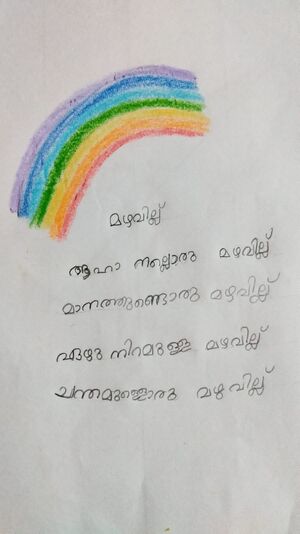 മഴവില്ല്
ആഹാ നല്ലൊരു മഴവില്ല്
മാനത്തുണ്ടൊരു മഴവില്ല്
ഏഴു നിറമുള്ള മഴവില്ല്
ചന്തമുള്ളൊരു മഴവില്ല്